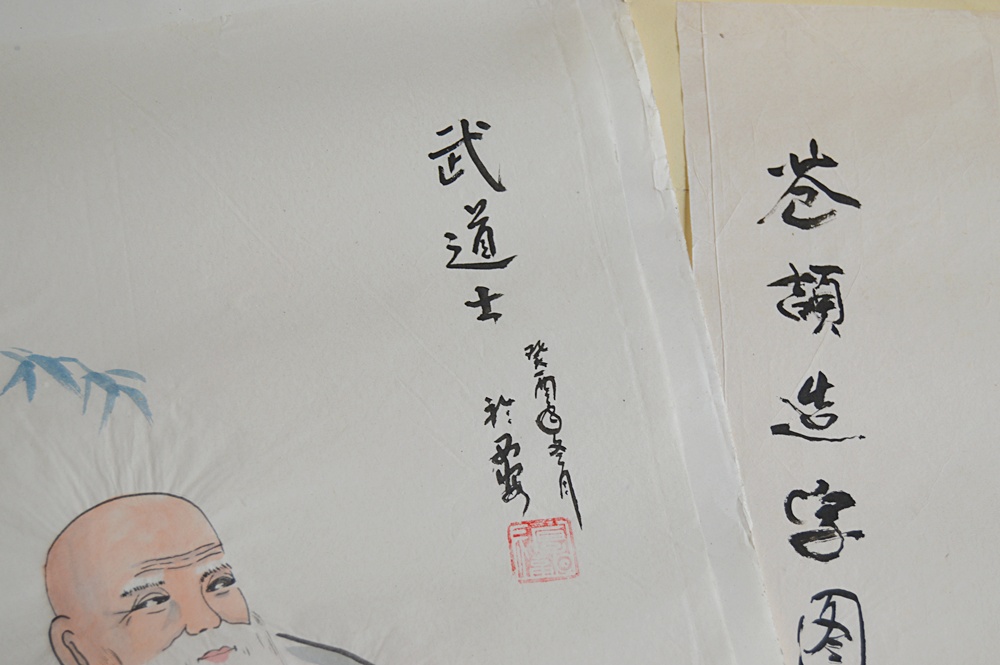 苍颉造字图
武道士
癸酉年冬月
於西安